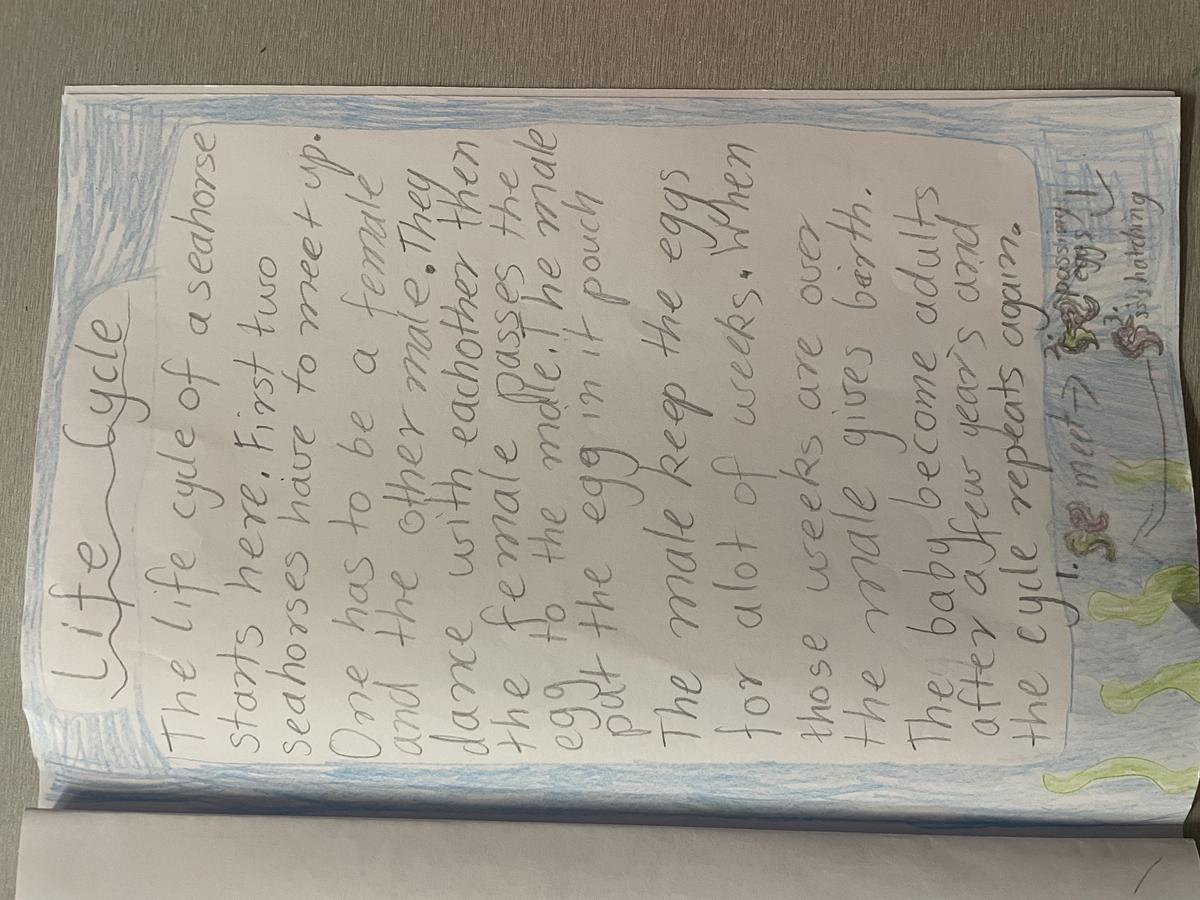 Life Cycle
The life cycle of a seahorse
starts here. First two
seahorses have to meet up.
One has to be a female
and the other male. They
dance with eachother then
the female passes the
egg to the male. The male
put the egg in it pouch
The male keep the eggs
for alot of weeks. When
those weeks are over
the male gives birth.
The baby become adults
after a few years and
the cycle repeats again.
1. meet
2. passing
eggs
3.
hatching